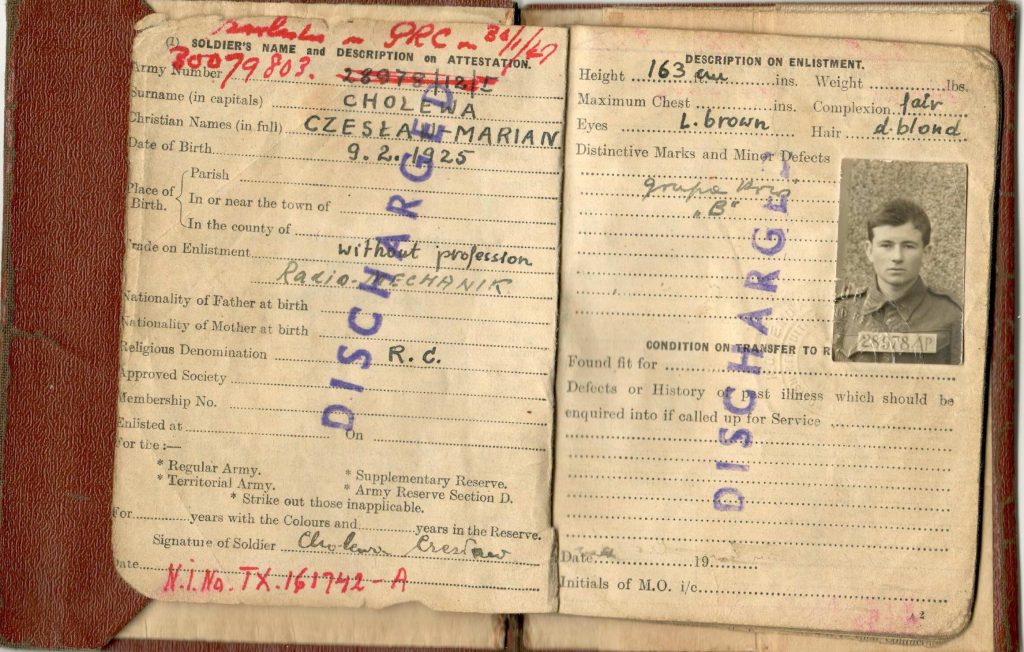 PRC
(1) SOLDIER'S NAME and DESCRIPTION on ATTESTATION.
30079803.
Army Number 28978/12/I
Surname (in capitals) CHOLEWA
Christian Names (in full) CZESŁAW MARIAN
Date of Birth 9. 2. 1925
Place of Birth. Parish
In or near the town of
In the county of
Trade on Enlistment without profession
Radio-MECHANIK
Nationality of Father at birth
Nationality of Mother at birth
Religious Denomination R. C.
Approved Society
Membership No.
Enlisted at On
For the :—
* Regular Army. * Supplementary Reserve.
* Territorial Army. * Army Reserve Section D.
* Strike out those inapplicable.
For years with the Colours and years in the Reserve.
Signature of Soldier Cholewa Czesław
Date
N.I.No. TX.161742-A
DISCHARGED
DESCRIPTION ON ENLISTMENT.
Height 163 cm ins. Weight lbs.
Maximum Chest ins. Complexion fair
Eyes L. brown Hair d. blond
Distinctive Marks and Minor Defects
grupa krwi
„B"
28978 AP
CONDITION ON TRANSFER TO R
Found fit for
Defects or History of past illness which should be
enquired into if called up for Service
Date 19
Initials of M.O. i/c
A 2
DISCHARGE